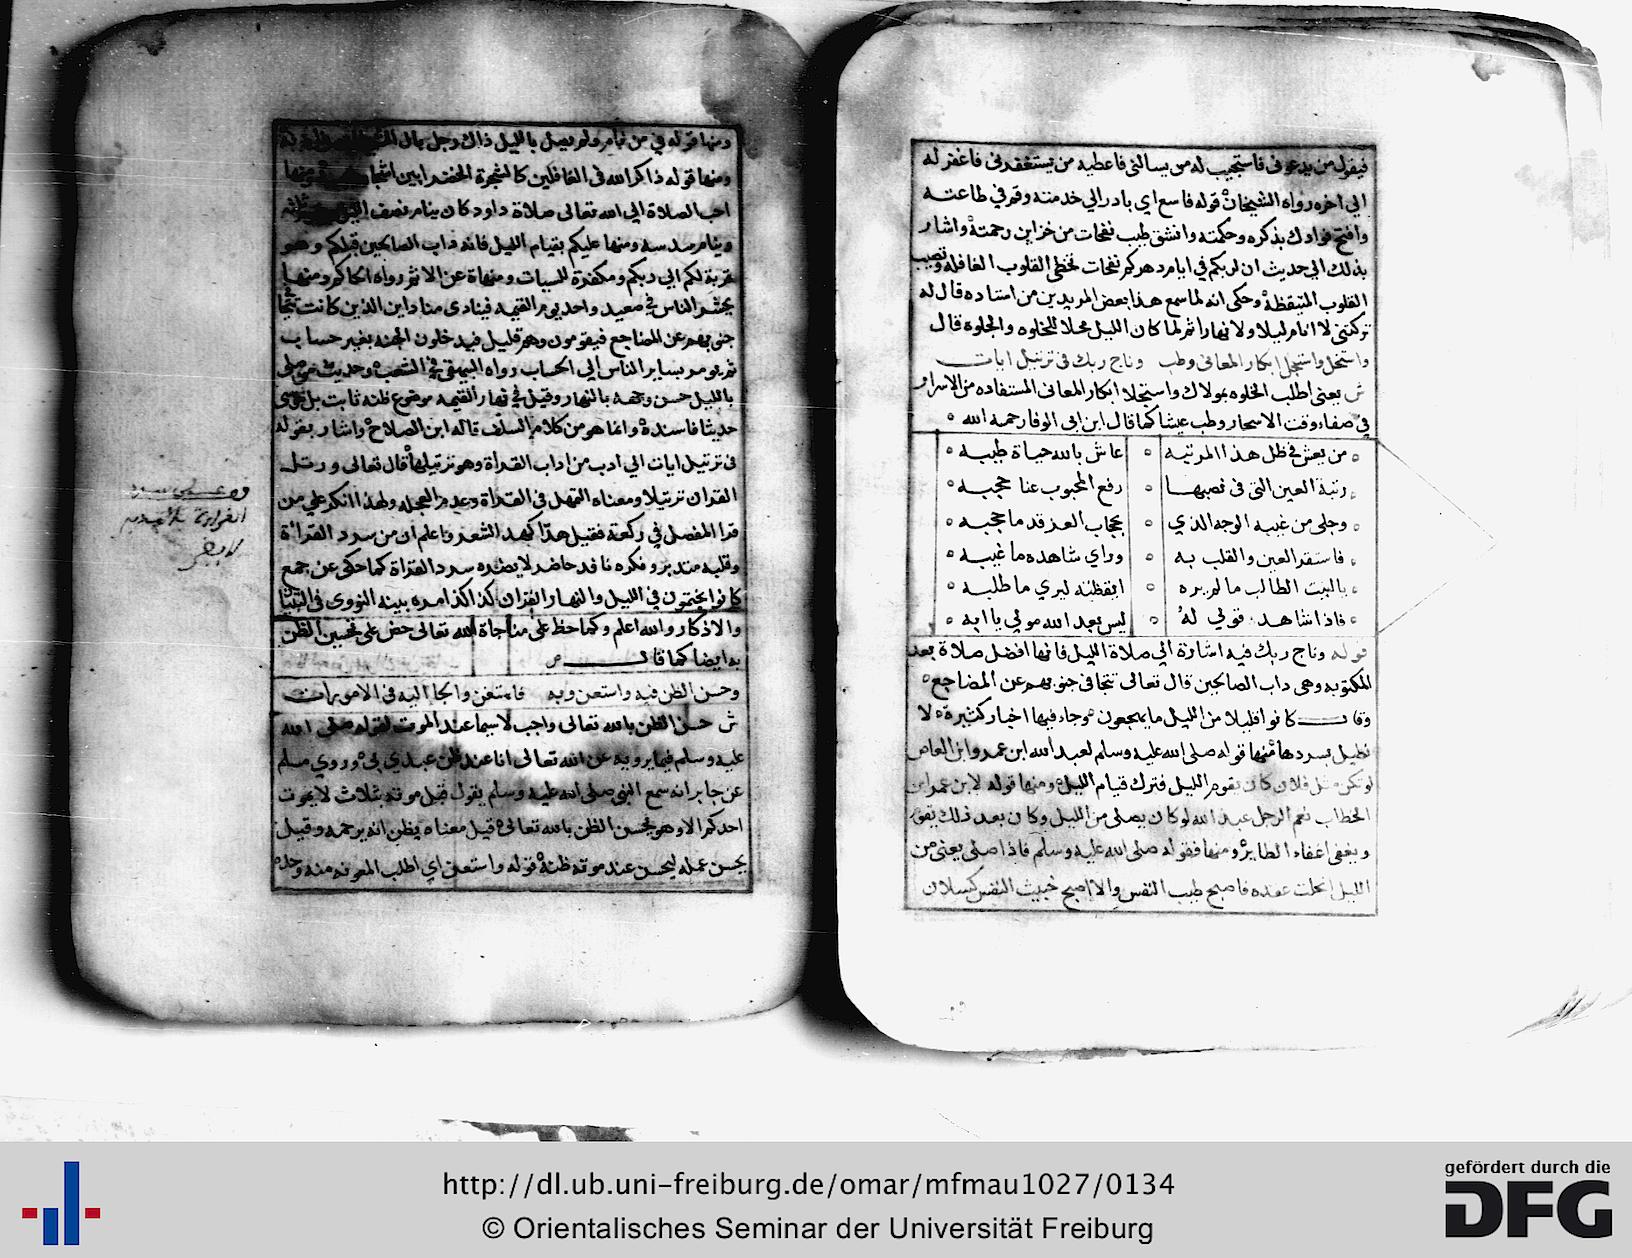 فيقول من يدعوني فاستجيب له من يسالني فاعطيه من يستغفرني فاغفر له
الي اخره رواه الشيخان قوله فاسع اي بادر الي خدمته وقم في طاعته
وافتح فوادك بذكره وحكمته وانشق طيب نفحات من خزاين رحمته واشار
بذلك الي حديث ان لربكم في ايام دهركم نفحات تخطي القلوب الغافله وتصيب
القلوب المتيقظة وحكي انه لما سمع هذا بعض المريدين من استاده قال له
تركتني لا انام ليلا ولا نهارا ثم لما كان الليل محلا للخلوه والجلوه قال
واستحل واستجل ابكار المعاني وطب وناج ربك في ترتيل ايات
ش يعني اطلب الخلوه بمولاك واستجلا ابكار المعاني المستفاده من الاسرار
في صفاء وقت الاسحار وطب عيشا كما قال ابن ابي الوفا رحمه الله
من يعش في ظل هذا المرتبه عاش بالله حياة طيبه
رتبة العين التي في نصبها رفع المحبوب عنا حجبه
وجلي من غيبه الوجه الذي بحجاب العز قد ما حجبه
فاستقر العين والقلب به وراي شاهده ما غيبه
يا لبيت الطالب ما لم يره ايقظته ليري ما طلبه
فاذا شاهد قولي له ليس بعد الله مولي يا ابه
قوله وناج ربك فيه اشارة الي صلاة الليل فانها افضل صلاة بعد
المكتوبه وهي داب الصالحين قال تعالى تتجافي جنوبهم عن المضاجع
وقال كانوا قليلا من الليل ما يهجعون وجاء فيها اخبار كثيرة لا
نطيل بسردها منها قوله صلى الله عليه وسلم لعبد الله ابن عمرو ابن العاص
لا تكن مثل فلان كان يقوم الليل فترك قيام الليل ومنها قوله لابن عمر ابن
الخطاب نعم الرجل عبد الله لو كان يصلي من الليل وكان بعد ذلك يقوم
ويغفي اغفاء الطاير ومنها فقوله صلى الله عليه وسلم فاذا صلي يعني من
الليل انحلت عقده فاصبح طيب النفس والا اصبح خبيث النفس كسلان
ومنها قوله في من نام ولم يصل بالليل ذاك رجل بال
ومنها قوله ذاكر الله في الغافلين كالشجرة الخضرا بين
احب الصلاة الي الله تعالى صلاة داود كان ينام نصف
وينام سدسه ومنها عليكم بقيام الليل فانه داب الصالحين قبلكم وهو
قربة لكم الي ربكم ومكفرة للسيات ومنهاة عن الاثم رواه الحاكم ومنها
يحشر الناس في صعيد واحد يوم القيمه فينادي مناد اين الذين كانت تتجافا
جنوبهم عن المضاجع فيقومون وهم قليل فيدخلون الجنه بغير حساب
ثم يومر بساير الناس الي الحساب رواه البيهقي في الشعب وحديث من صلي
بالليل حسن وجهه بالنهار وقيل في نهار القيمه موضوع ظنه ثابت بل
حديثا فاسنده وانما هو من كلام السلف قاله ابن الصلاح واشار بقوله
في ترتيل ايات الي ادب من اداب القراة وهو ترتيلها قال تعالى ورتل
القران ترتيلا ومعناه التمهل في القراة وعدم العجله ولهذا انكر علي من
قرا المفصل في ركعة فقيل هذا كهذ الشعر واعلم ان من سرد القراة
وقلبه متدبر وفكره نافد حاضر لا يضره سرد القراة كما حكي عن جمع
كانوا يختمون في الليل والنهار القران كذا كذا مره بينه النووي في التبيان
والاذكار والله اعلم وكما حظ على مناجاة الله تعالى حض على تحسين الظن
به ايضا كما قال ص
وحسن الظن فيه واستعن وبه فاستغن والجا اليه في الامورات
ش حسن الظن بالله تعالى واجب لا سيما عند الموت لقوله صلى الله
عليه وسلم فيما يرويه عن الله تعالى انا عند ظن عبدي بي وروي مسلم
عن جابر انه سمع النبي صلى الله عليه وسلم يقول قبل موته بثلاث لا يموت
احدكم الا وهو يحسن الظن بالله تعالى قيل معناه يظن انه يرحمه وقيل
يحسن عمله ليحسن عند موته ظنه قوله واستعن اي اطلب المعونه منه وحده
http://dl.ub.uni-freiburg.de/omar/mfmau1027/0134
© Orientalisches Seminar der Universität Freiburg
gefördert durch die
DFG